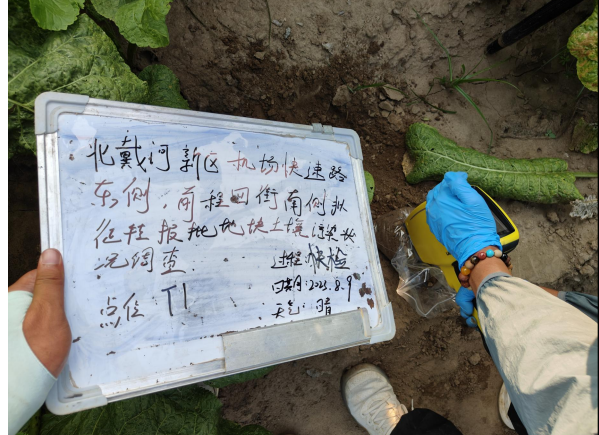 北戴河新区机场快速路
东侧、前程四街南侧拟
征转报批地块土壤污染状
况调查 过程:快检
点位 T1 日期:2023.8.9
天气:晴